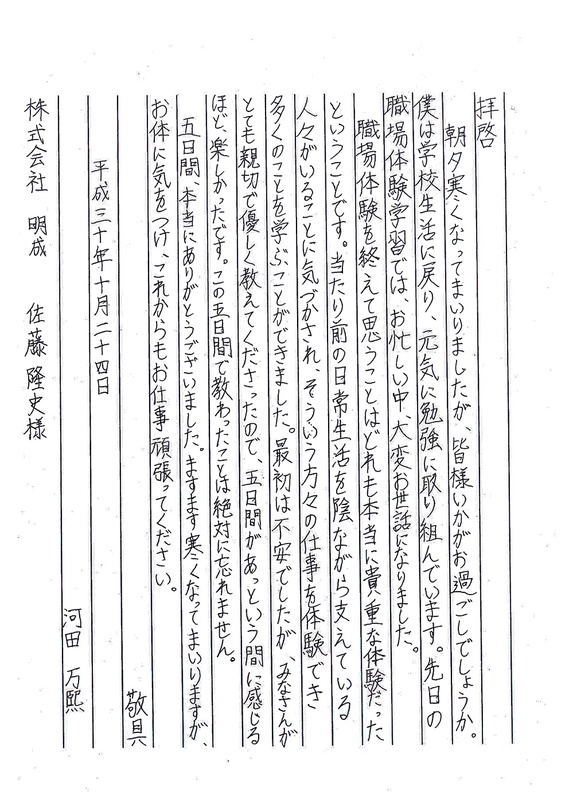 拝啓
朝夕寒くなってまいりましたが、皆様いかがお過ごしでしょうか。
僕は学校生活に戻り、元気に勉強に取り組んでいます。先日の
職場体験学習では、お忙しい中、大変お世話になりました。
職場体験を終えて思うことはどれも本当に貴重な体験だった
ということです。当たり前の日常生活を陰ながら支えている
人々がいることに気づかされ、そういう方々の仕事を体験でき
多くのことを学ぶことができました。最初は不安でしたが、みなさんが
とても親切で優しく教えてくださったので、五日間があっという間に感じる
ほど、楽しかったです。この五日間で教わったことは絶対に忘れません。
五日間、本当にありがとうございました。ますます寒くなってまいりますが、
お体に気をつけ、これからもお仕事頑張ってください。
敬具
平成三十年十月二十四日
河田 万熙
株式会社 明成 佐藤隆史様